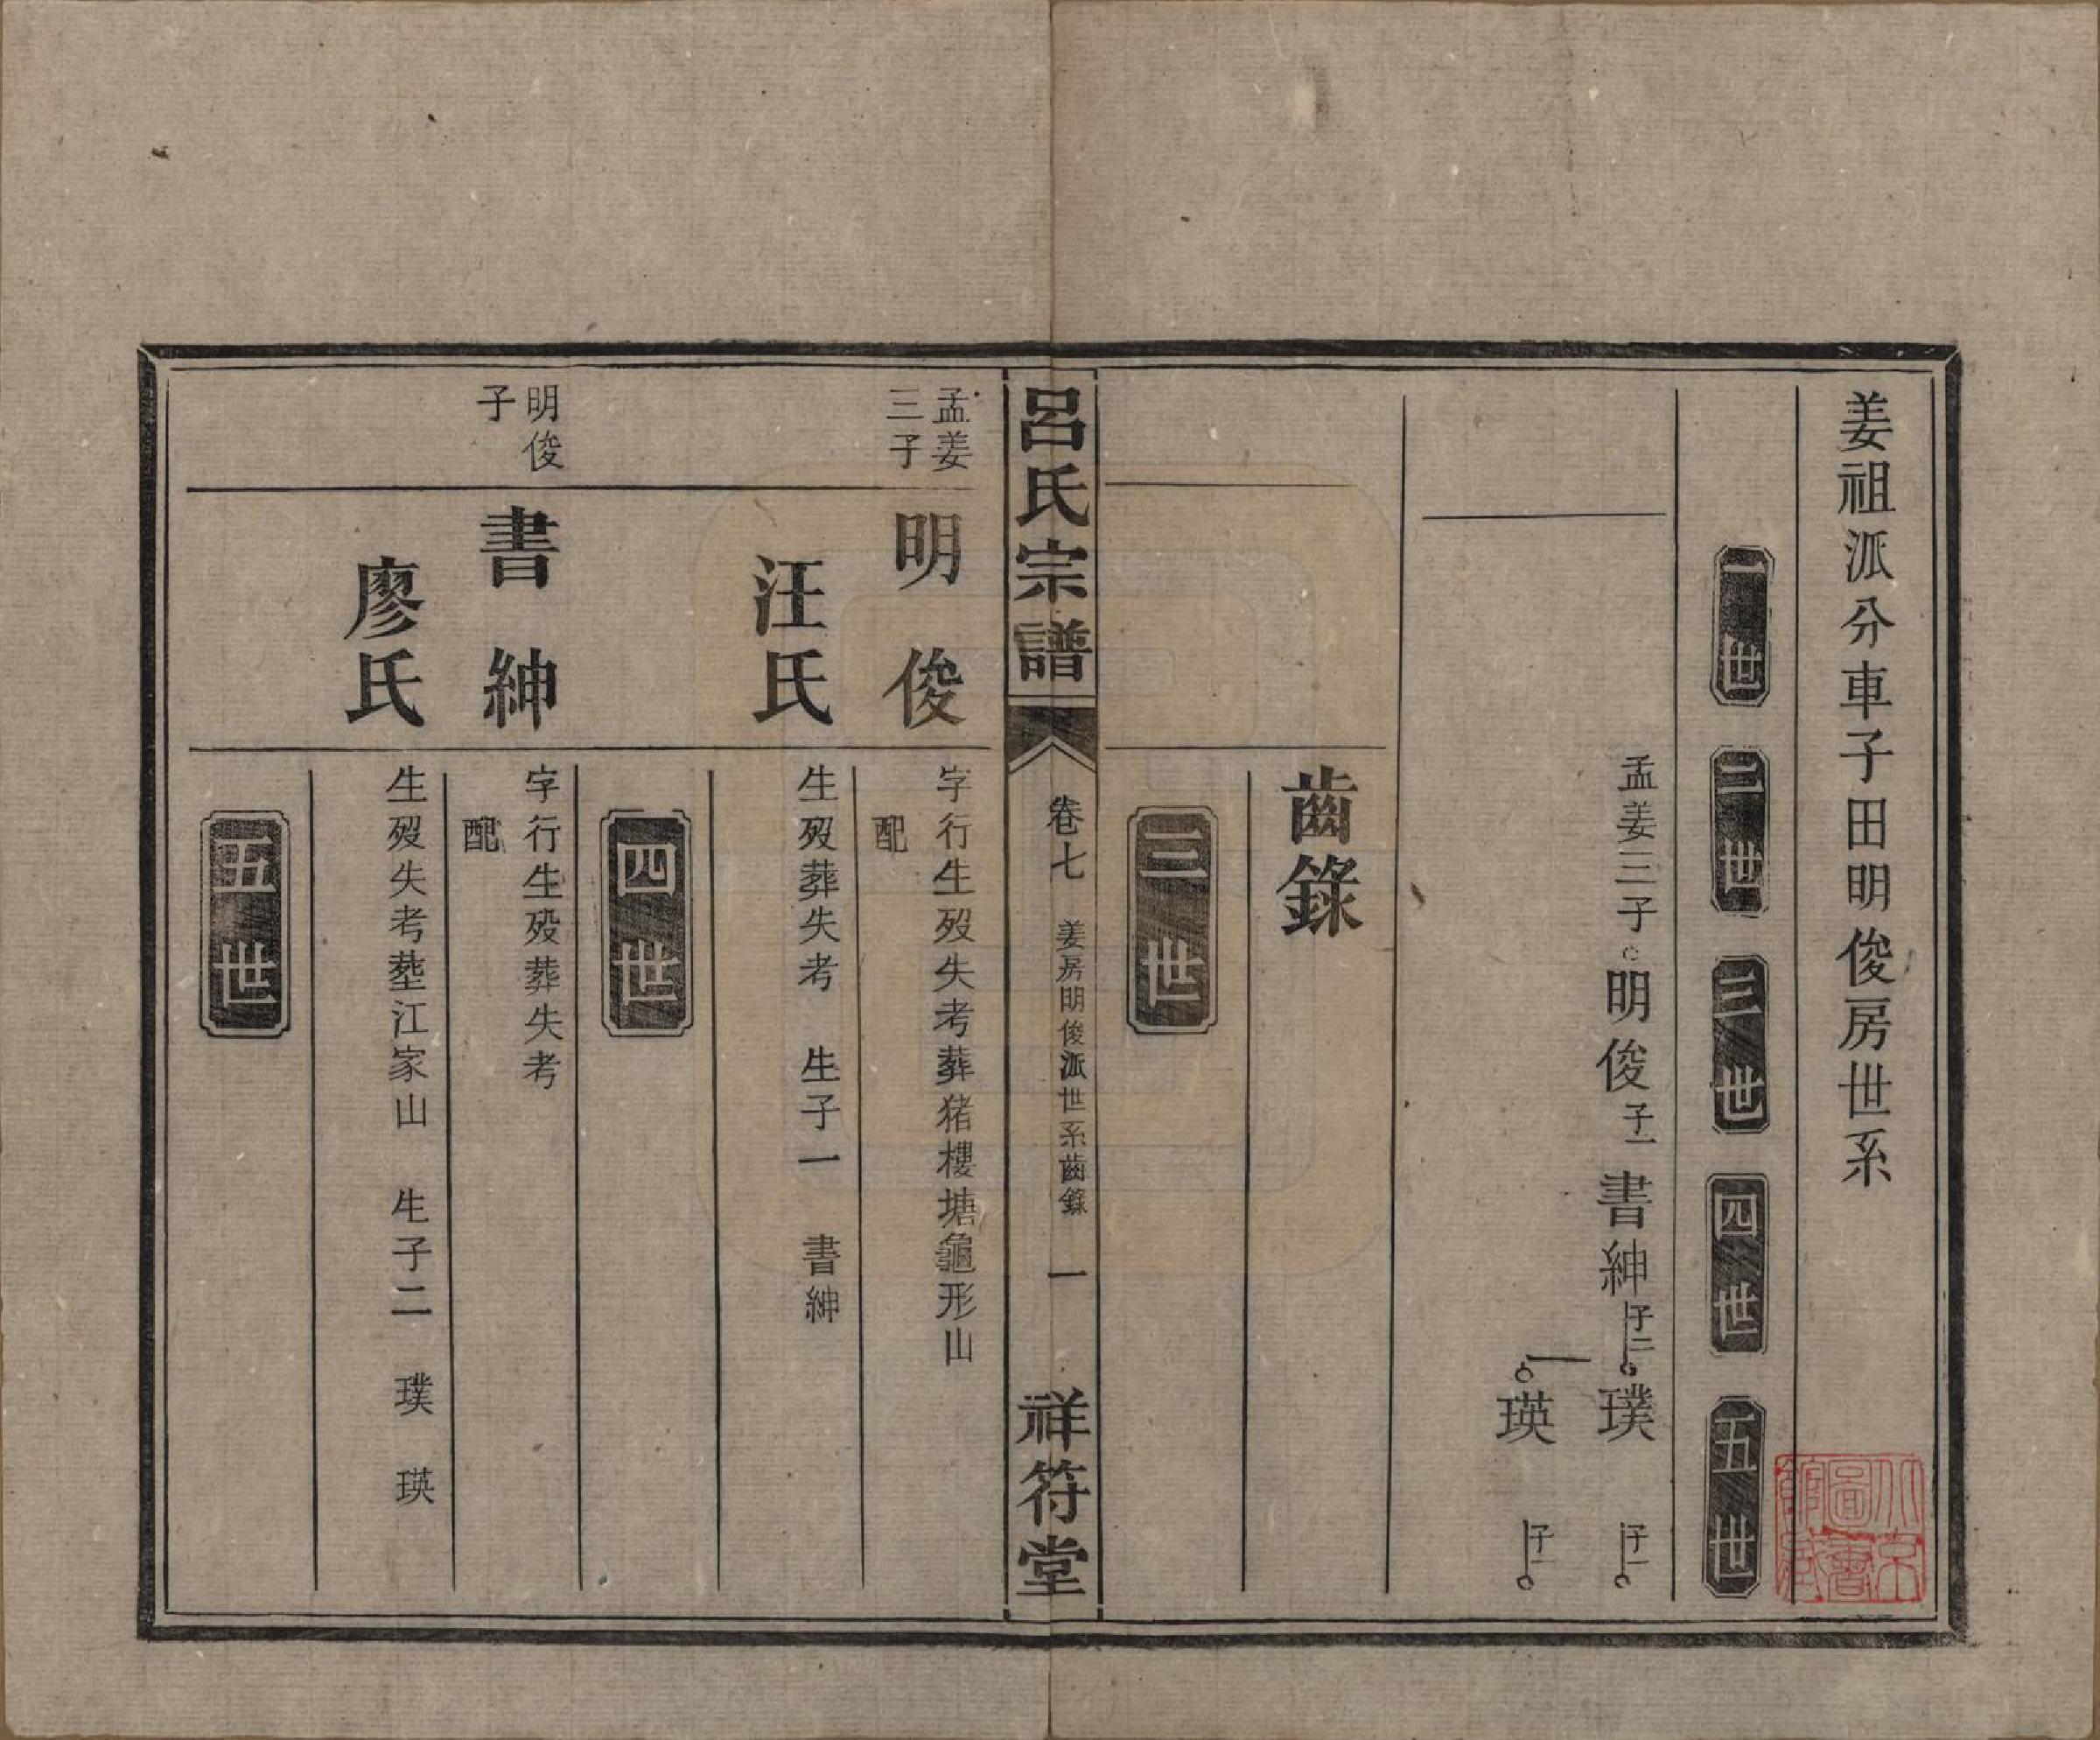 姜祖派分車子田明俊房世系
一世
二世
三世
四世
五世
孟姜三子
明俊 子一
書紳 子二
璞 子一
瑛 子一
齒錄
三世
呂氏宗譜
卷七
姜房明俊派世系齒錄
一
祥符堂
孟姜
三子
明俊
字行生歿失考葬猪樓塘龜形山
配
汪氏
生歿葬失考 生子一 書紳
四世
明俊
子
書紳
字行生歿葬失考
配
廖氏
生歿失考塟江家山 生子二 璞 瑛
五世
北京
圖書
館藏